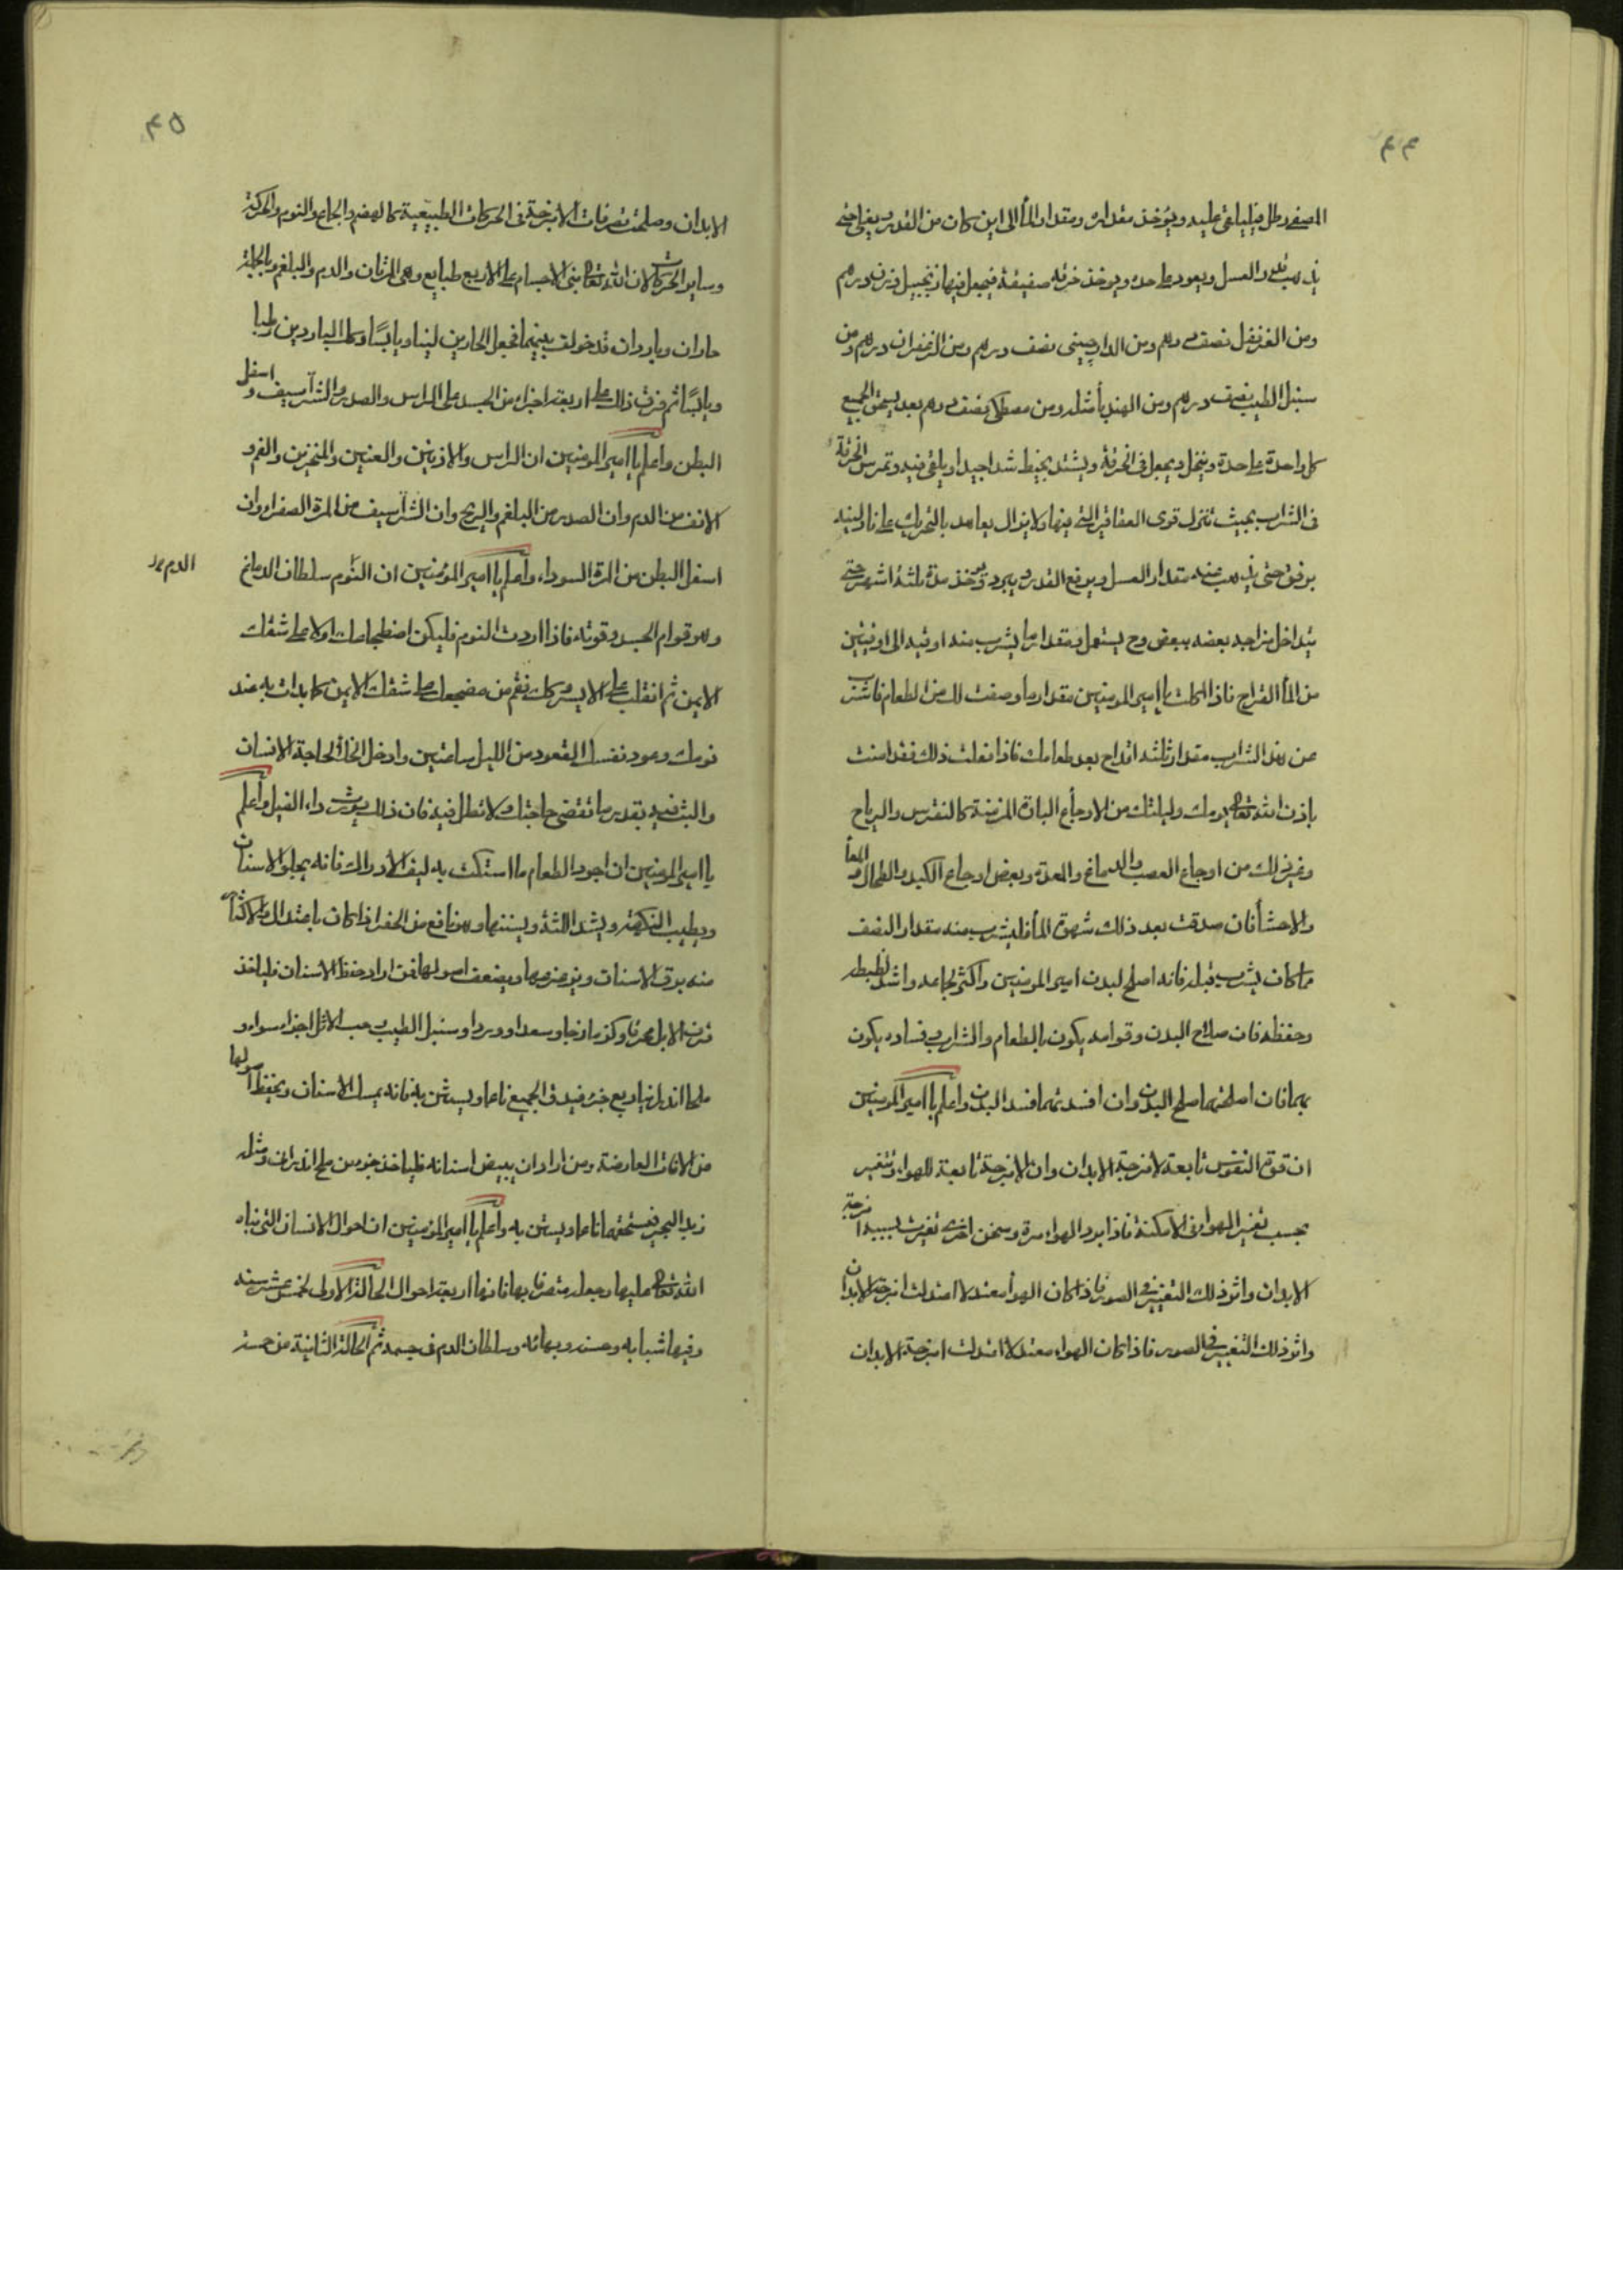 ٤٤
المصفى رطل فيلقى عليه ويؤخذ مقداره ومقدار الماء الى اين كان من القدر يغلى حتى
يذهب قدر العسل ويعود على حده ويوخذ خرقه صفيقة فيجعل فيها زنجبيل وزن درهم
ومن القرنفل نصف درهم ومن الدارچينى نصف درهم ومن الزعفران درهم ومن
سنبل الطيب نصف درهم ومن الهندبا مثله ومن مصطكى نصف درهم بعد يسحق الجميع
كل واحدة على حدة وينخل ويجعل فى الخرقة ويشتد بخيط شدا جيدا ويلقى فيه وتمرس الخرقة
فى الشراب بحيث تنزل قوى العقاقير التى فيها ولا يزال يعاهد بالتحريك على نار لينه
برفق حتى يذهب عنه مقدار العسل ويرفع القدر ويبرد ويؤخذ مدة ثلثة اشهر حتى
يتداخل مزاجه بعضه ببعض وح يستعمل ومقدار ما يشرب منه اوقيه الى اوقيتين
من الماء القراح فاذا اكلت يا امير المومنين مقدار ما وصفت لك من الطعام فاشرب
من هذا الشراب مقدار ثلثه اقداح بعد طعامك فاذا فعلت ذلك فقد امنت
باذن الله تعالى يومك وليلتك من الاوجاع الباردة المزمنة كالنقرس والرياح
وغير ذلك من اوجاع العصب والدماغ والمعدة وبعض اوجاع الكبد والطحال والمعا
والاحشا فان صدقت بعد ذلك شهوة الماء فليشرب منه مقدار النصف
مما كان يشرب قبله فانه اصلح لبدن امير المومنين واكثر لجماعه واشد لضبطه
وحفظه فان صلاح البدن وقوامه يكون بالطعام والشراب وفساده يكون
بهما فان اصلحتهما صلح البدن وان افسدتهما فسد البدن واعلم يا امير المومنين
ان قوة النفوس تابعة لامزجة الابدان وان الامزجة تابعة للهواء وتتغير
بحسب تغير الهواء فى الامكنة فاذا برد الهواء مرة وسخن اخرى تغيرت بسببه امزجة
الابدان واثر ذلك التغيير فى الصور فاذا كان الهواء معتدلا اعتدلت امزجة الابدان
واثر ذلك التغيير فى الصور فاذا كان الهواء معتدلا اعتدلت امزجة الابدان
٤٥
الابدان وصلحت تصرفات الامزجة فى الحركات الطبيعية كالهضم والجماع والنوم والحركة
وساير الحركات لان الله تعالى بنى الاجسام على الاربع طبايع وهى المرتان والدم والبلغم وبالجملة
حاران وباردان قد خولف بينهما فجعل الحارين لينا ويابسًا وكك الباردين رطبا
ويابسًا ثم فرق ذلك على اربعة اجزاء من الجسد على الراس والصدر والشراسيف واسفل
البطن واعلم يا امير المومنين ان الراس والاذنين والعينين والمنخرين والفم و
الانف من الدم وان الصدر من البلغم والريح وان الشراسيف من المرة الصفراء وان
اسفل البطن من المرة السوداء واعلم يا امير المؤمنين ان النّوم سلطان الدماغ
وهو قوام الجسد وقوته فاذا اردت النوم فليكن اضطجاعك اولا على شقك
الايمن ثم انقلب على الايسر وكك فقم من مضجعك على شقك الايمن كما بدات به عند
نومك وعود نفسك القعود من الليل ساعتين وادخل الخلأ لحاجة الانسان
والبث فيه بقدر ما تقضى حاجتك ولا تطل فيه فان ذلك يورث داء الفيل واعلم
يا امير المومنين ان اجود الطعام ما استكت به ليف الاراك فانه يجلو الاسنان
ويطيب النكهة ويشد اللثة ويسننها وهو نافع من الحفر اذا كان باعتدال والاكثار
منه يرق الاسنان ويزعزعها ويضعف اصولها فمن اراد حفظ الاسنان فلياخذ
قرن الابل محرقا وكزمازجا وسعدا ووردا وسنبل الطيب حب الاثل اجزاء سواء و
ملحا اندرانيا ربع جزء فيدق الجميع ناعما ويستن به فانه يمسك الاسنان ويحفظ اصولها
من الافات العارضة ومن اراد ان يبيض اسنانه فلياخذ جزء من ملح اندرانى ومثله
زبد البحر فيسحقهما ناعما ويستن به واعلم يا امير المؤمنين ان احوال الانسان التى بناه
الله تعالى عليها وجعله متصرفا بها فانها اربعة احوال الحالة الاولى لخمس عشر سنه
وفيها شبابه وحسنه وبهائه وسلطان الدم فى جسمه ثم الحالة الثانية من خمسه